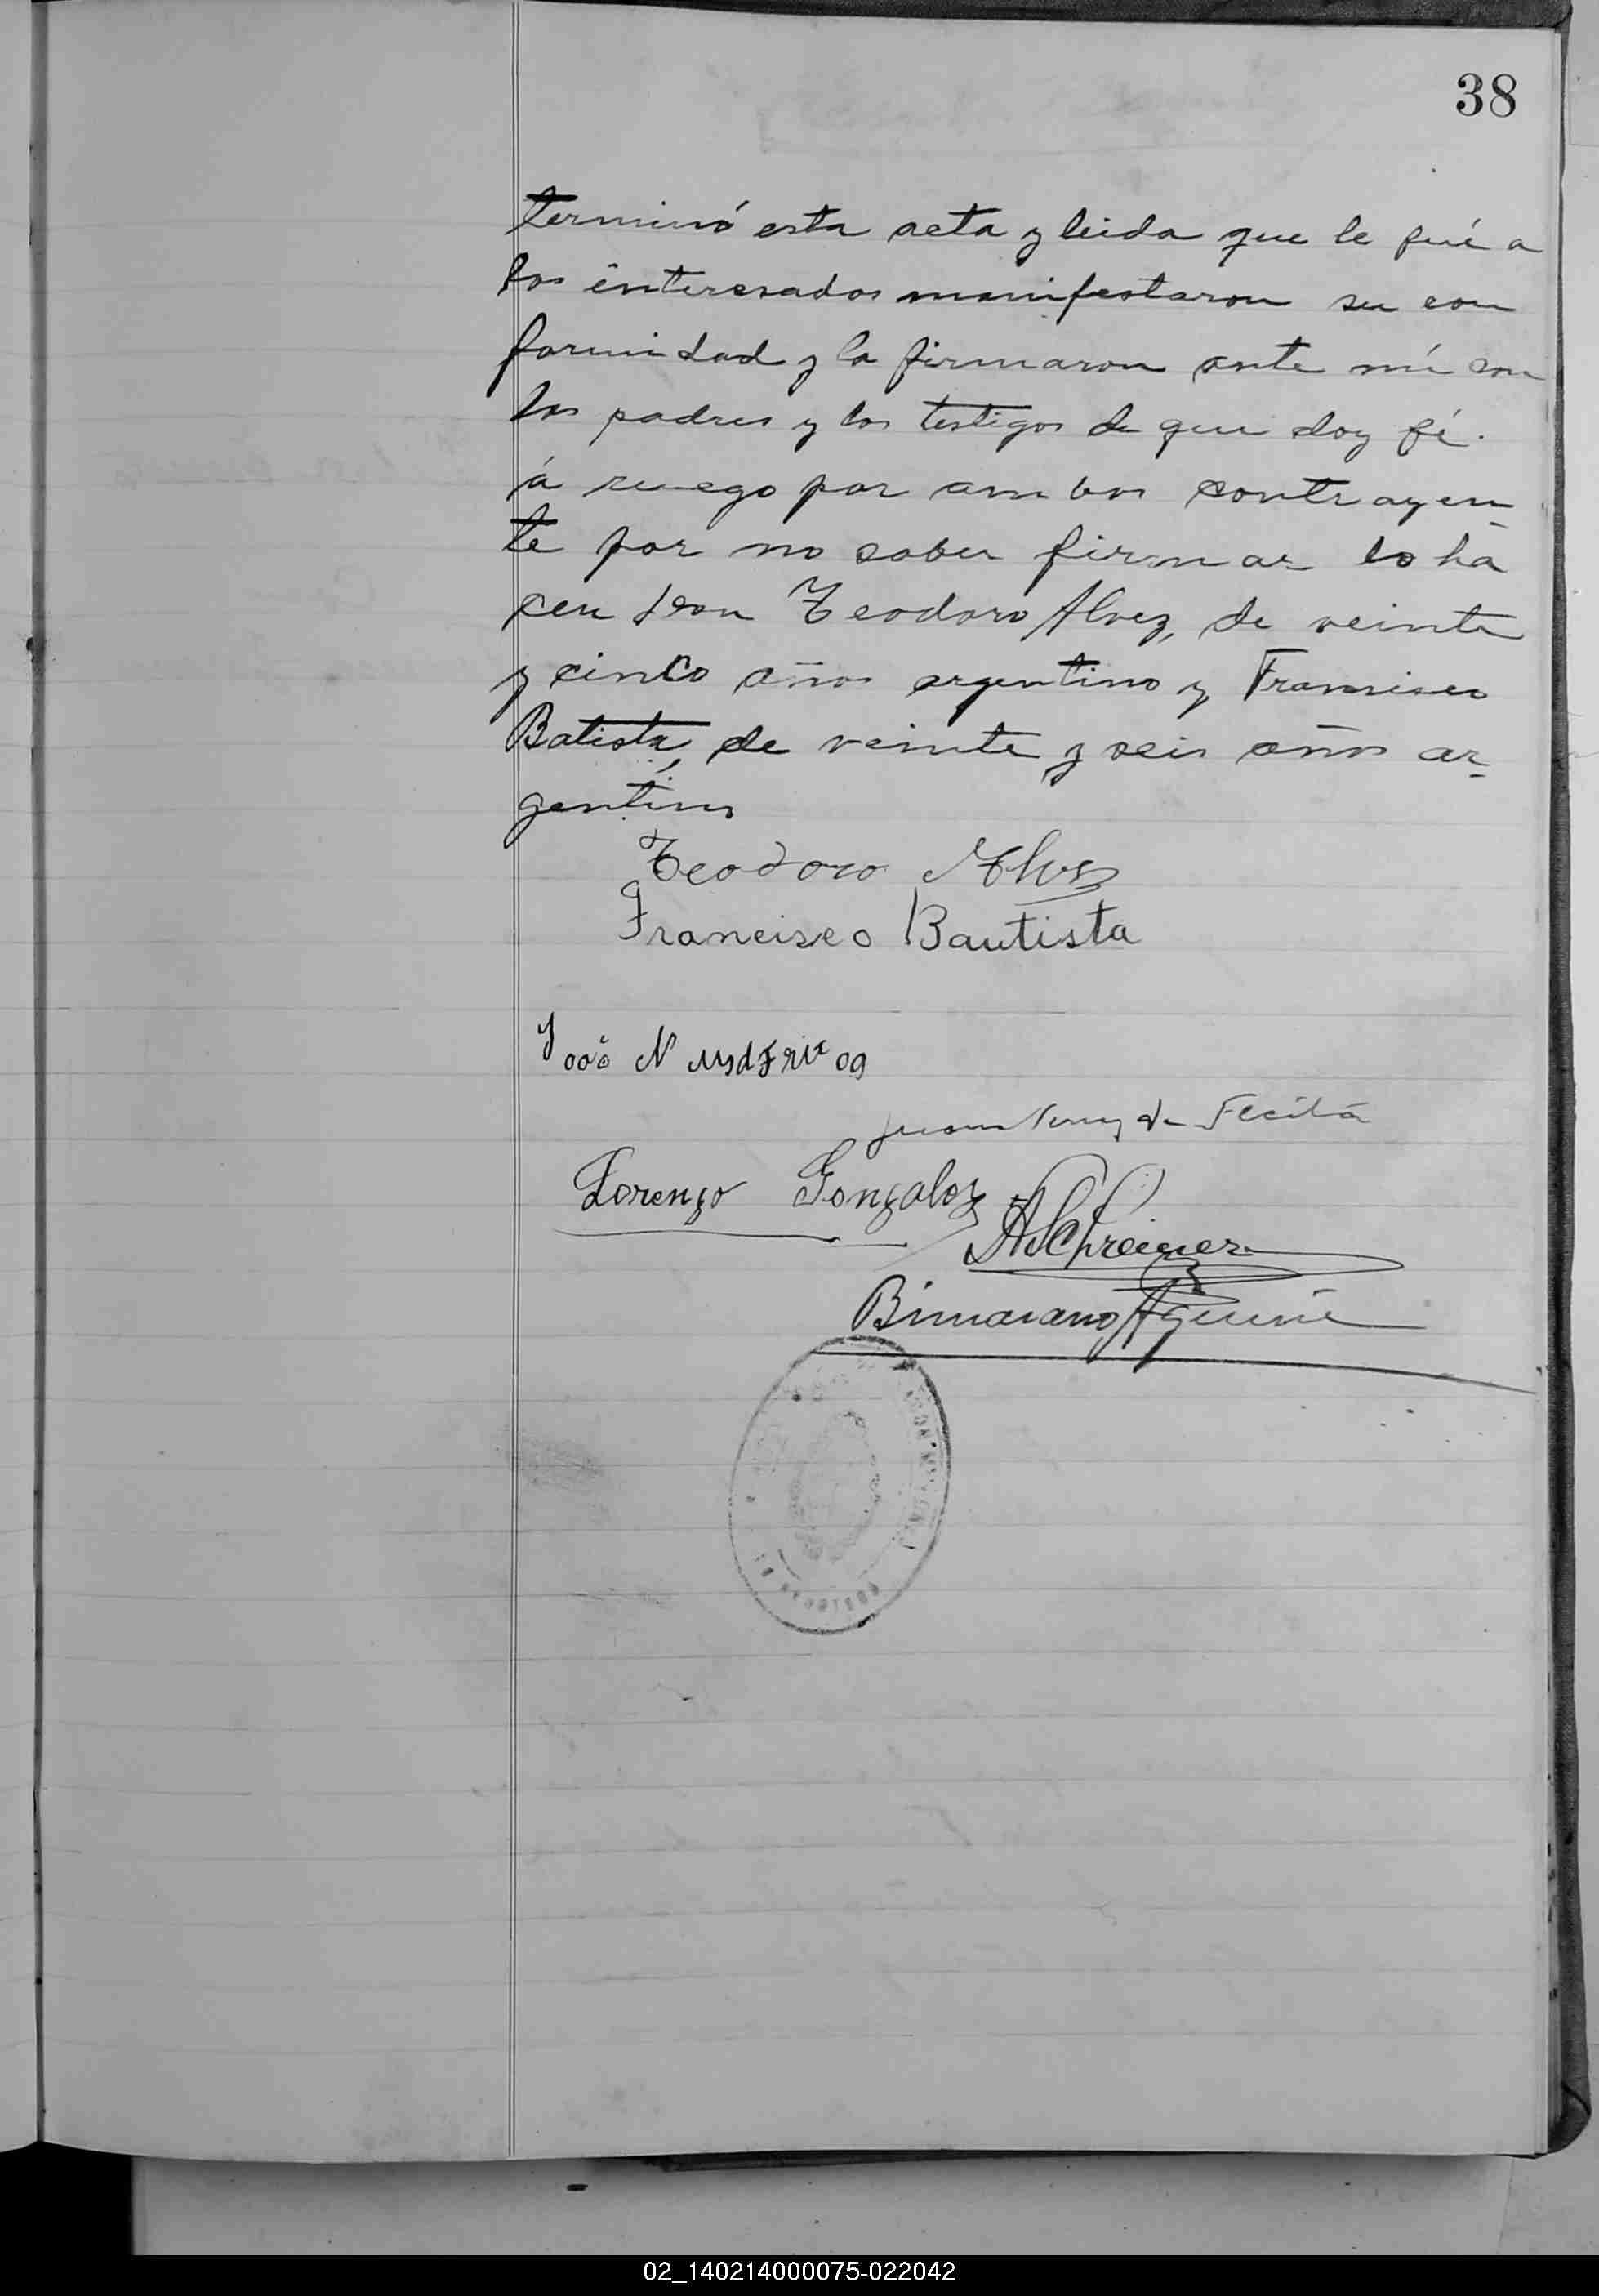 38
terminó esta acta y leida que le fué a
los interesados manifestaron su con
formidad y la firmaron ante mí con
los padres y los testigos de que doy fé.
á ruego por ambos contrayen
te por no saber firmar lo ha
cen Don Teodoro Alvez, de veinte
y cinco años argentino y Francisco
Batista, de veinte y seis años ar-
gentino
Teodoro Alvez
Francisco Bautista
Lorenzo Gonzalez
Aguirre
02_140214000075-022042